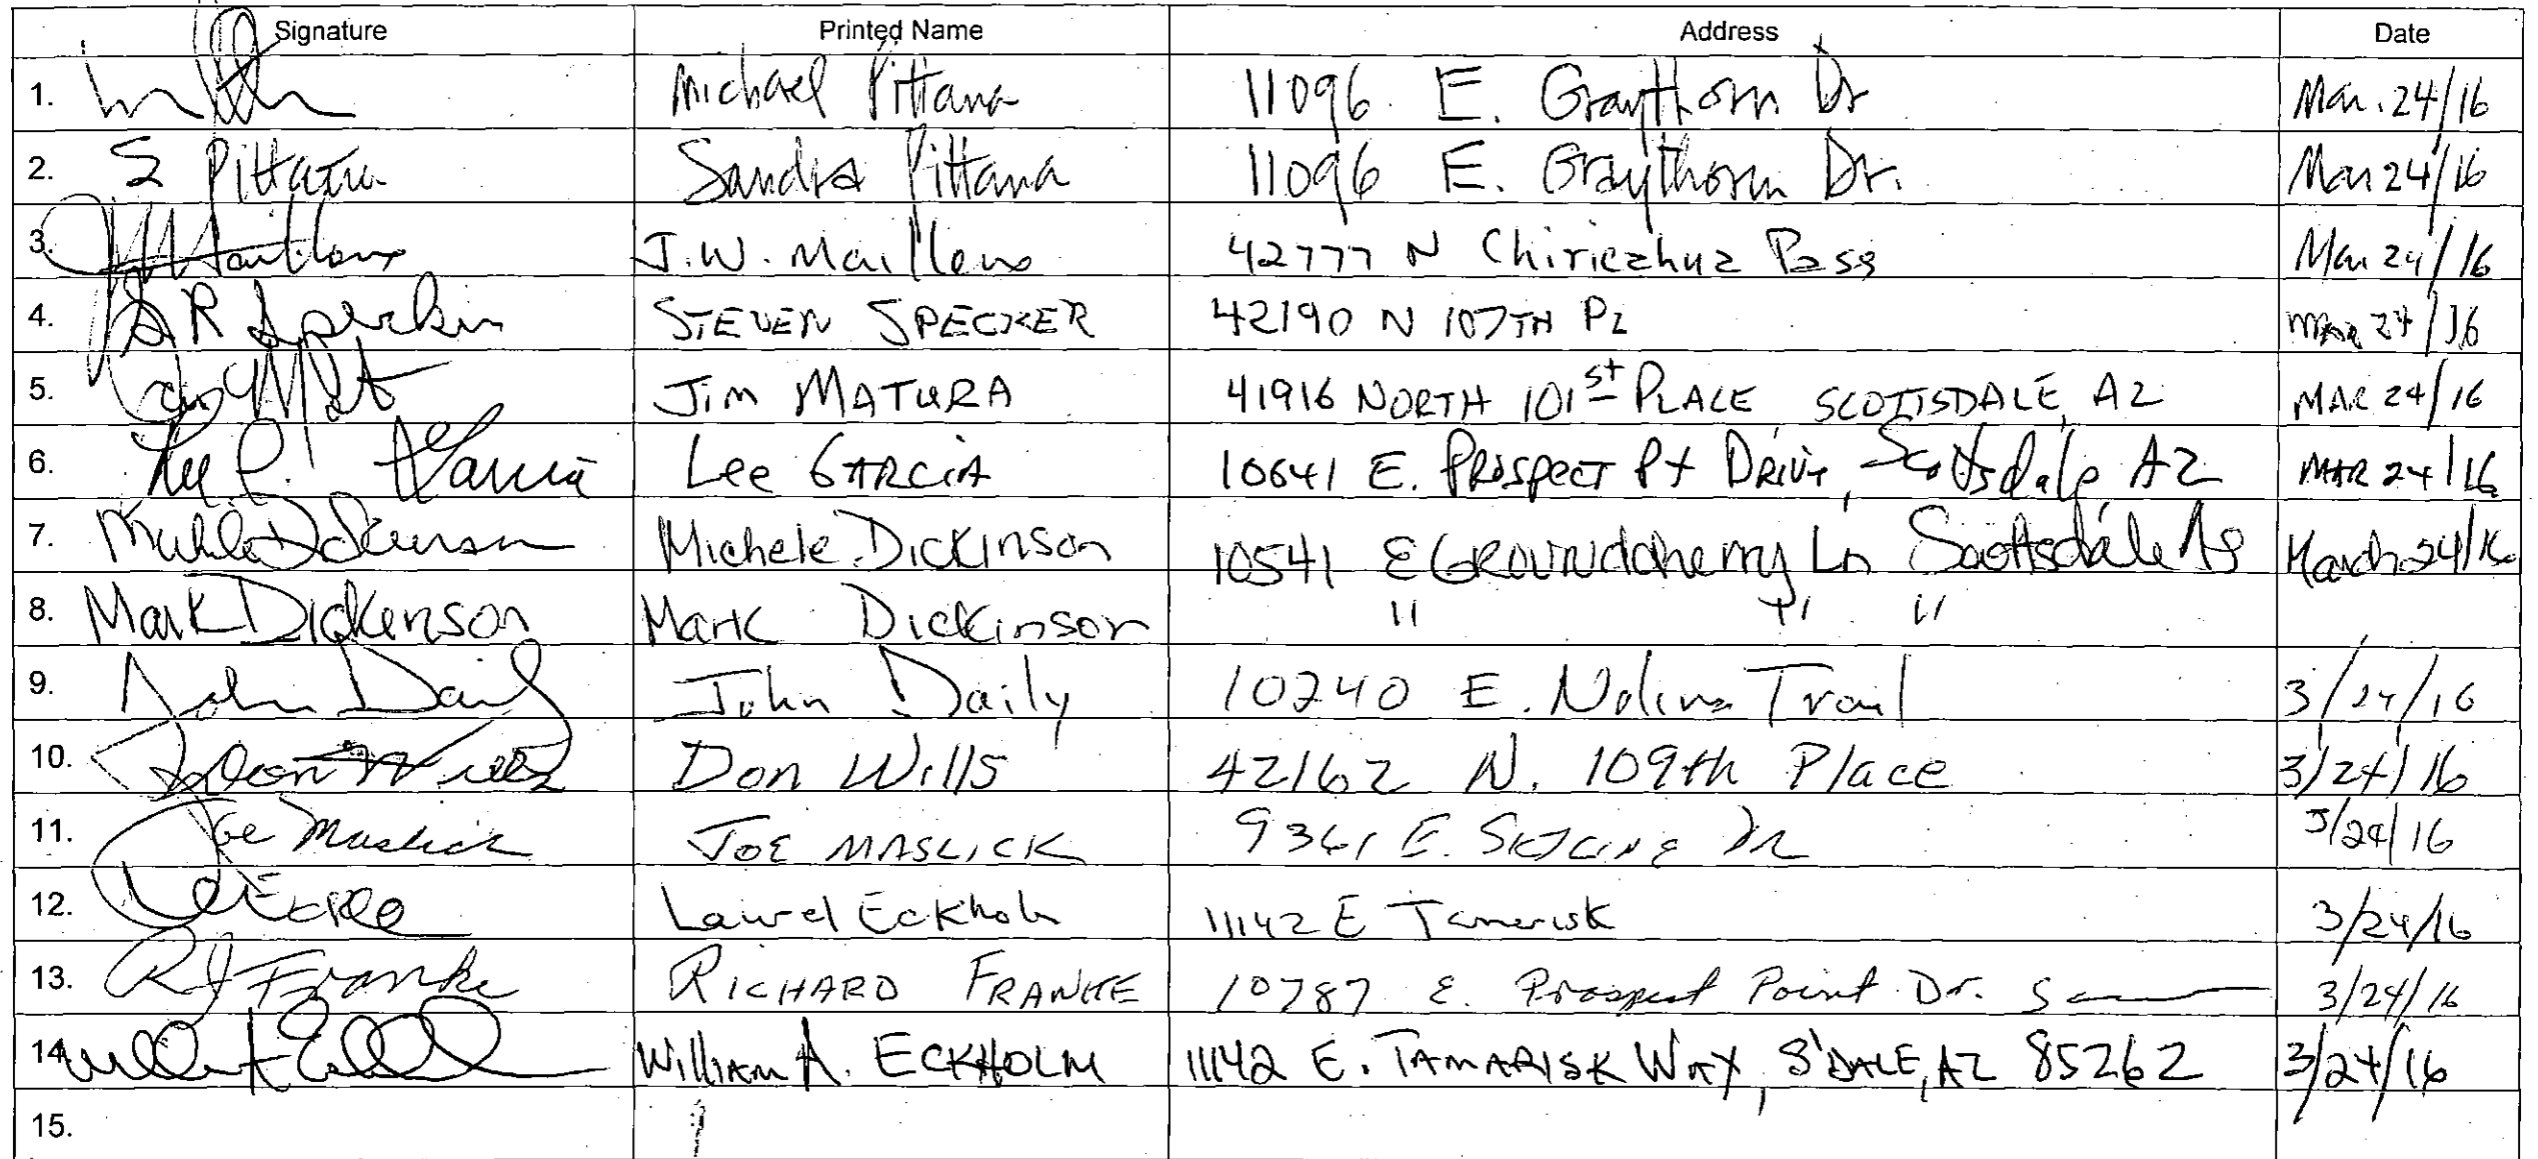 Signature Printed Name Address Date
1. Michael Pittana 11096 E. Graythorn Dr Mar. 24/16
2. S Pittana Sandra Pittana 11096 E. Graythorn Dr. Mar 24/16
3. J.W. 42777 N Chiricahua Pass Mar 24/16
4. STEVEN SPECKER 42190 N 107TH PL Mar 24/16
5. Jim MATURA 41916 NORTH 101st PLACE SCOTTSDALE, AZ MAR 24/16
6. Lee Garcia Lee GARCIA 10641 E. PROSPECT Pt DRIVE, Scottsdale AZ MAR 24/16
7. Michele Dickinson 10541 E GROUNDcherry Ln Scottsdale Az March 24/16
8. Mark Dickenson Mark Dickinson " " "
9. John Daily John Daily 10240 E. Nolina Trail 3/24/16
10. Don Wills Don Wills 42162 N. 109th Place 3/24/16
11. Joe Maslick JOE MASLICK 9361 E. SKYLINE DR 3/24/16
12. Laurel Eckholm 11142 E Tamerisk 3/24/16
13. RJ Franke RICHARD FRANKE 10787 E. Prospect Point Dr. 3/24/16
14. William A. ECKHOLM 11142 E. TAMARISK WAY, S'DALE, AZ 85262 3/24/16
15.